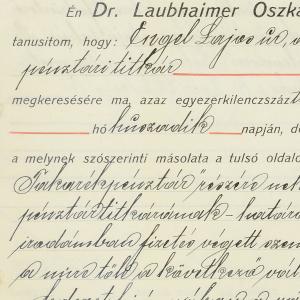 Én Dr. Laubhaimer Oszka
tanusitom, hogy: Engel Lajos úr, a
pénztári titkár
megkeresésére ma, azaz egyezerkilenczszázt
hó huszadik napján, d
a melynek szószerinti másolata a tulsó oldalo
Takarékpénztár" részére nek
pénztártitkárának - határ
irodámban fizetés végett szem
a mire től a következő vál